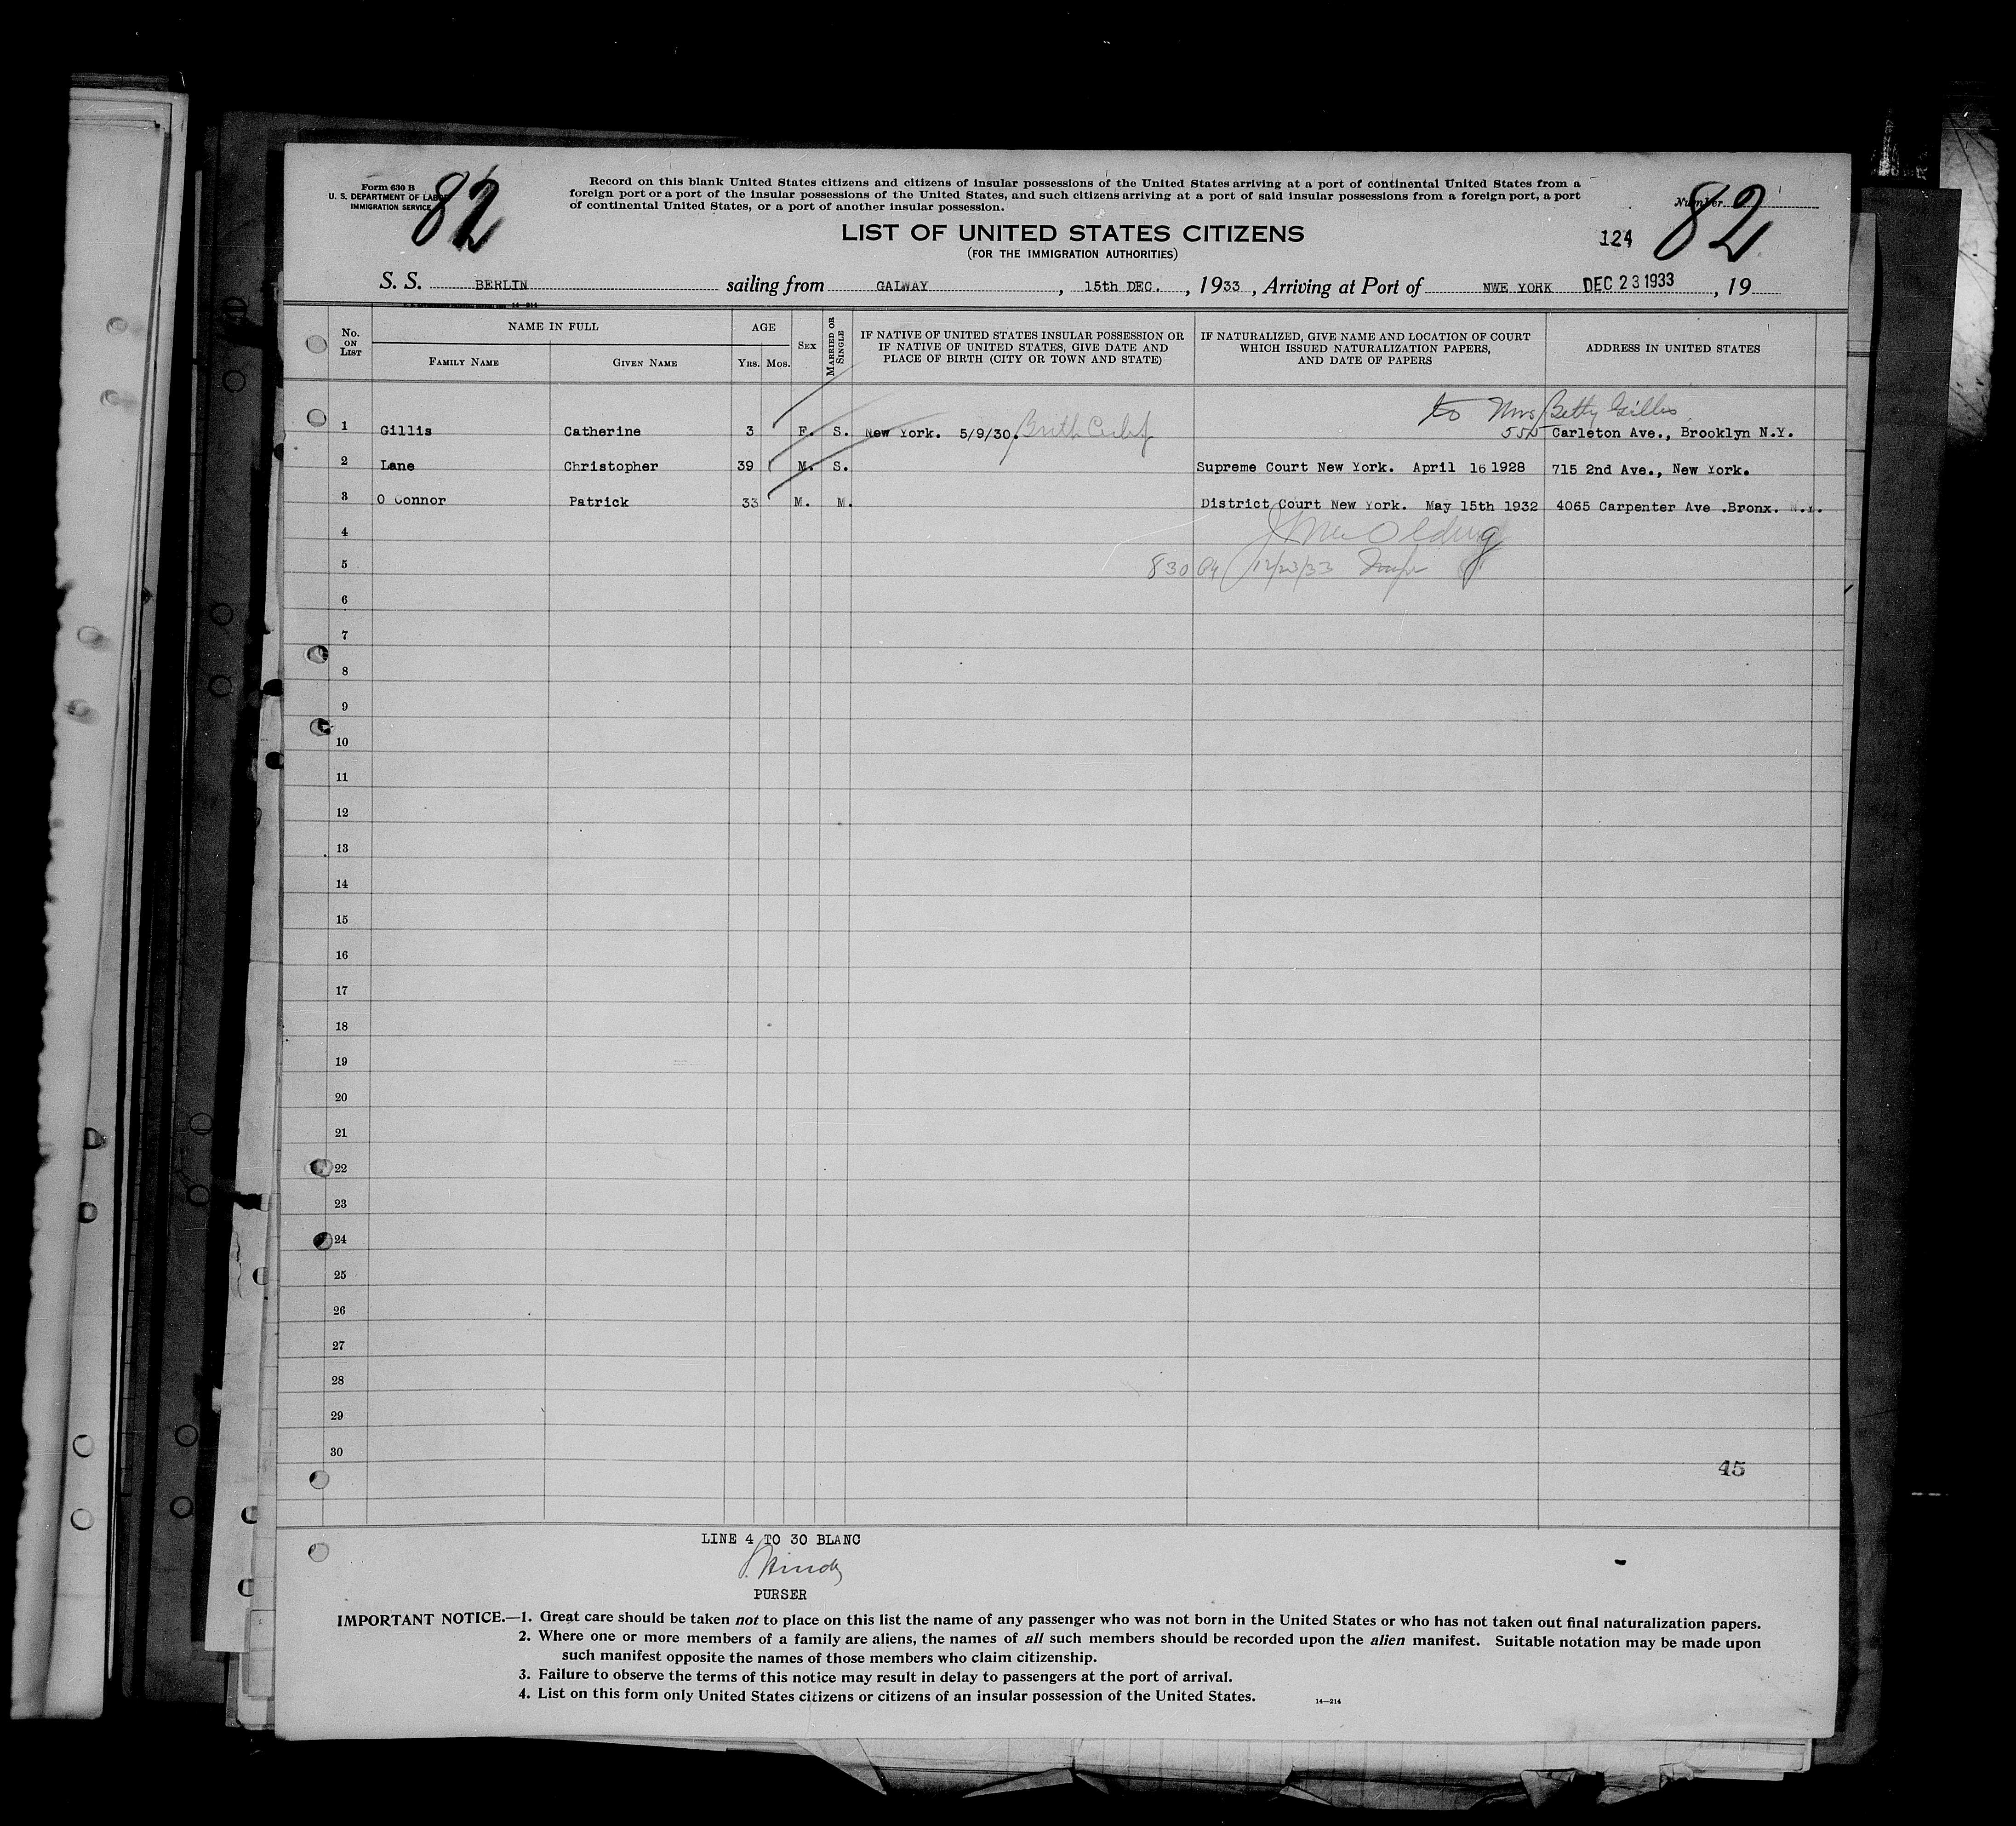 Form 630 B
U. S. DEPARTMENT OF LABOR
IMMIGRATION SERVICE
82
Record on this blank United States citizens and citizens of insular possessions of the United States arriving at a port of continental United States from a
foreign port or a port of the insular possessions of the United States, and such citizens arriving at a port of said insular possessions from a foreign port, a port
of continental United States, or a port of another insular possession.
Number
82
LIST OF UNITED STATES CITIZENS
124
(FOR THE IMMIGRATION AUTHORITIES)
S. S. BERLIN sailing from GALWAY, 15th DEC., 1933, Arriving at Port of NWE YORK DEC 23 1933, 19
No. ON LIST
NAME IN FULL
FAMILY NAME
GIVEN NAME
AGE
YRS. MOS.
SEX
MARRIED OR SINGLE
IF NATIVE OF UNITED STATES INSULAR POSSESSION OR
IF NATIVE OF UNITED STATES, GIVE DATE AND
PLACE OF BIRTH (CITY OR TOWN AND STATE)
IF NATURALIZED, GIVE NAME AND LOCATION OF COURT
WHICH ISSUED NATURALIZATION PAPERS,
AND DATE OF PAPERS
ADDRESS IN UNITED STATES
to Mrs Betty Gillis
1 Gillis Catherine 3 F. S. New York. 5/9/30. Birth 555 Carleton Ave., Brooklyn N.Y.
2 Lane Christopher 39 M. S. Supreme Court New York. April 16 1928 715 2nd Ave., New York.
3 O Connor Patrick 33 M. M. District Court New York. May 15th 1932 4065 Carpenter Ave .Bronx. N.Y.
4
5 830 12/23/33
6
7
8
9
10
11
12
13
14
15
16
17
18
19
20
21
22
23
24
25
26
27
28
29
30
45
LINE 4 TO 30 BLANC
PURSER
IMPORTANT NOTICE.—1. Great care should be taken not to place on this list the name of any passenger who was not born in the United States or who has not taken out final naturalization papers.
2. Where one or more members of a family are aliens, the names of all such members should be recorded upon the alien manifest. Suitable notation may be made upon
such manifest opposite the names of those members who claim citizenship.
3. Failure to observe the terms of this notice may result in delay to passengers at the port of arrival.
4. List on this form only United States citizens or citizens of an insular possession of the United States.
14—214